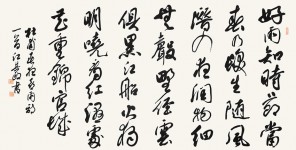 好雨知時節當
春乃發生隨風
潛入夜潤物細
無聲野徑雲
俱黑江船火獨
明曉看紅濕處
花重錦官城
杜甫春夜喜雨詩